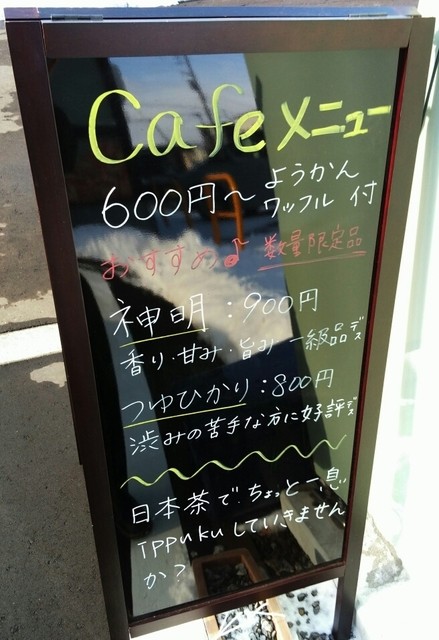 Cafeメニュー
600円～ ようかん
ワッフル 付
おすすめ♪ 数量限定品
神明：900円
香り・甘み・旨み 一級品デス
つゆひかり：800円
渋みの苦手な方に好評デス
日本茶で ちょっと一息
IPPUKUしていきません
か？